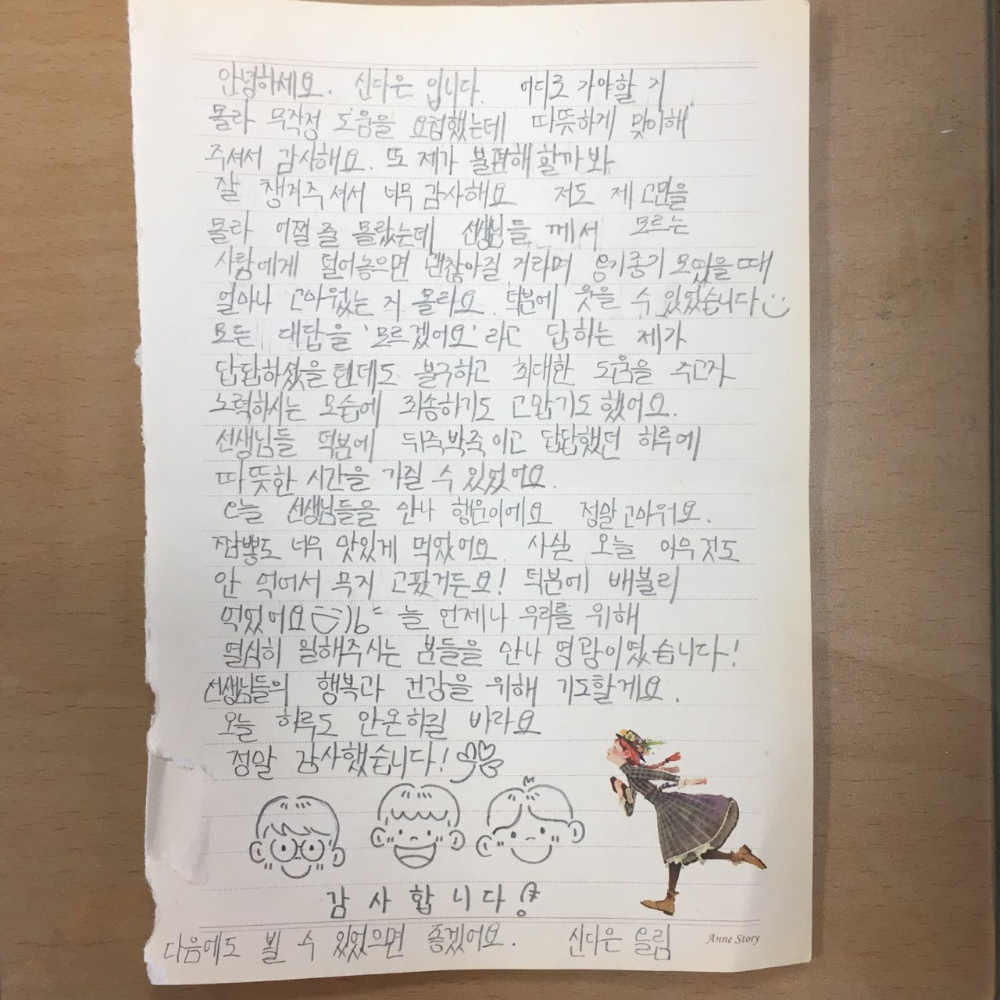 안녕하세요. 신다은 입니다. 어디로 가야할 지
몰라 무작정 도움을 요청했는데 따뜻하게 맞이해
주셔서 감사해요. 또 제가 불편해 할까봐
잘 챙겨주셔서 너무 감사해요 저도 제 고민을
몰라 어쩔 줄 몰랐는데 선생님들 께서 모르는
사람에게 털어놓으면 괜찮아질 거라며 옹기종기 모였을 때
얼마나 고마웠는 지 몰라요. 덕분에 웃을 수 있었습니다
모든 대답을 '모르겠어요' 라고 답하는 제가
답답하셨을 텐데도 불구하고 최대한 도움을 주고자
노력하시는 모습에 죄송하기도 고맙기도 했어요.
선생님들 덕분에 뒤죽박죽이고 답답했던 하루에
따뜻한 시간을 가질 수 있었어요.
오늘 선생님들을 만나 행운이에요 정말 고마워요.
짬뽕도 너무 맛있게 먹었어요. 사실 오늘 아무것도
안 먹어서 무지 고팠거든요! 덕분에 배불리
먹었어요 늘 언제나 우리를 위해
열심히 일해주시는 분들을 만나 영광이였습니다!
선생님들의 행복과 건강을 위해 기도할게요.
오늘 하루도 안온하길 바라요
정말 감사했습니다!
감사합니다!
다음에도 뵐 수 있었으면 좋겠어요. 신다은 올림
Anne Story